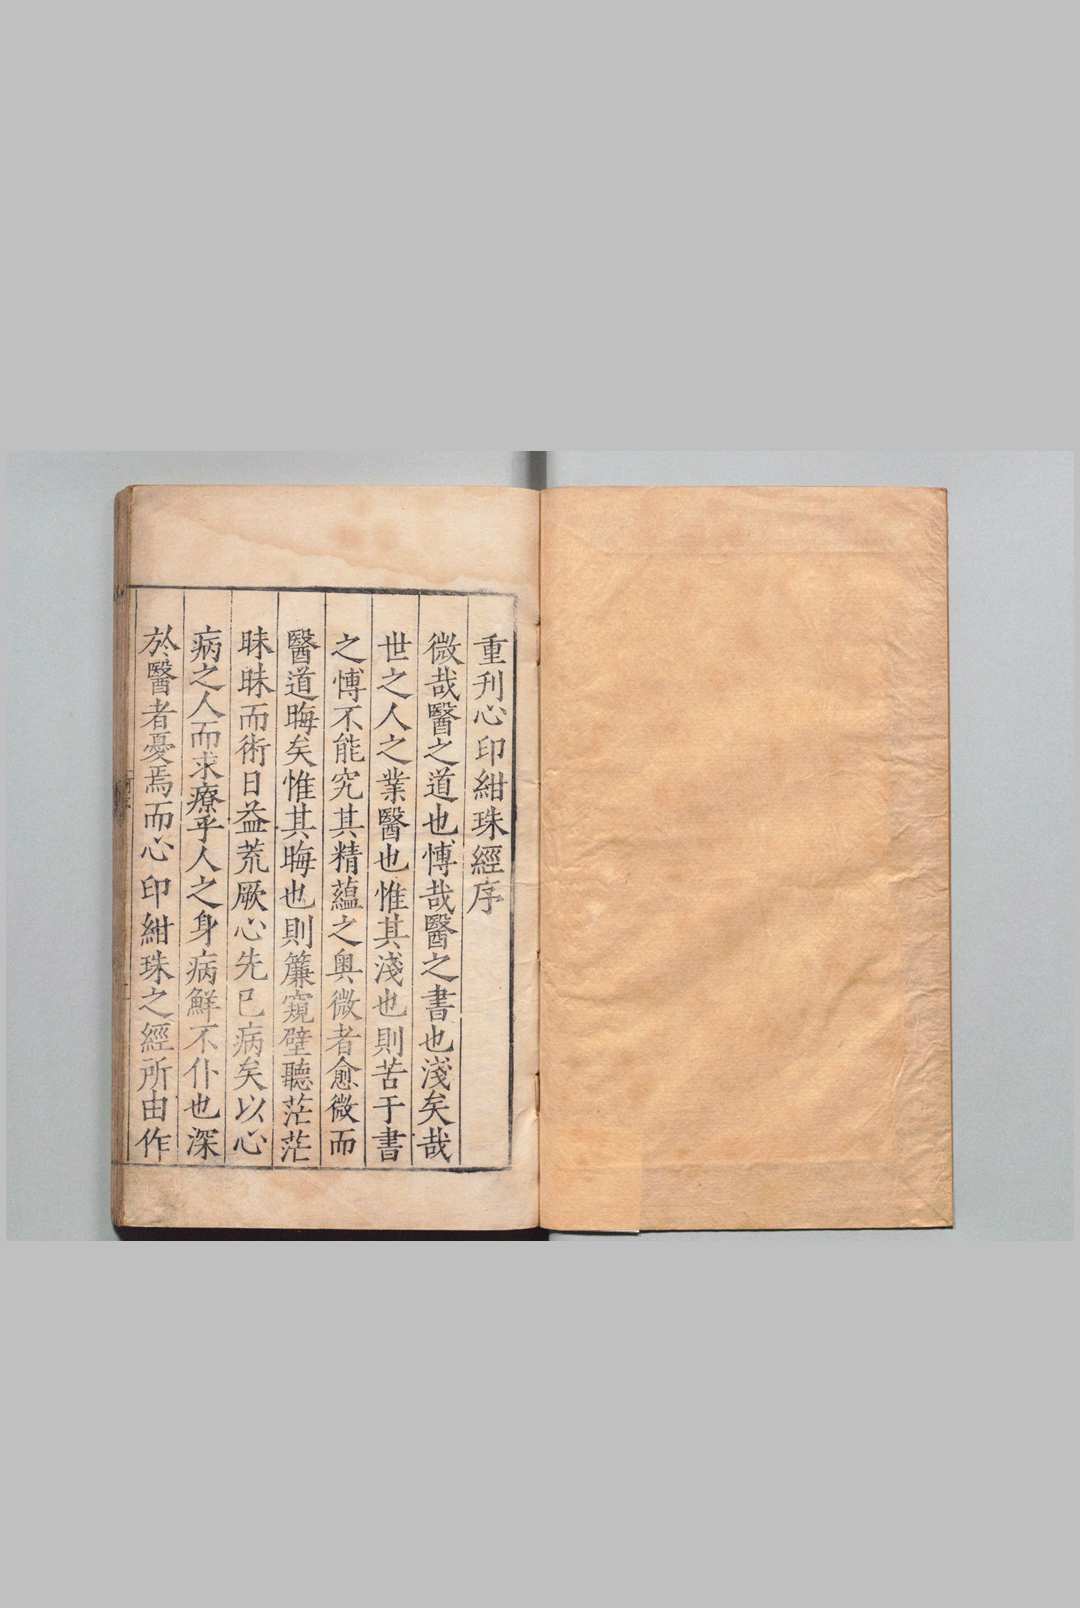 重刊心印紺珠經序
微哉醫之道也愽哉醫之書也淺矣哉
世之人之業醫也惟其淺也則苦于書
之愽不能究其精蘊之奥微者愈微而
醫道晦矣惟其晦也則簾窺壁聽茫茫
昧昧而術日益荒厥心先已病矣以心
病之人而求療乎人之身病鮮不仆也深
於醫者憂焉而心印紺珠之經所由作